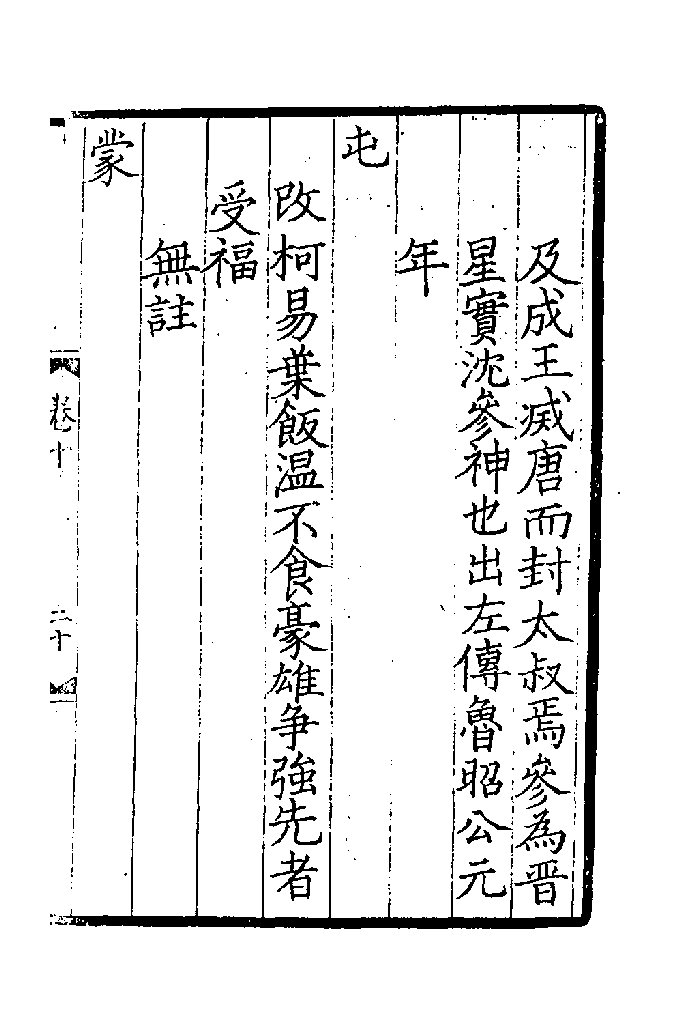 及成王滅唐而封太叔焉參為晋
星實沈參神也出左傳魯昭公元
年
屯
改柯易葉飯温不食豪雄争強先者
受福
無註
蒙
卷十
二十